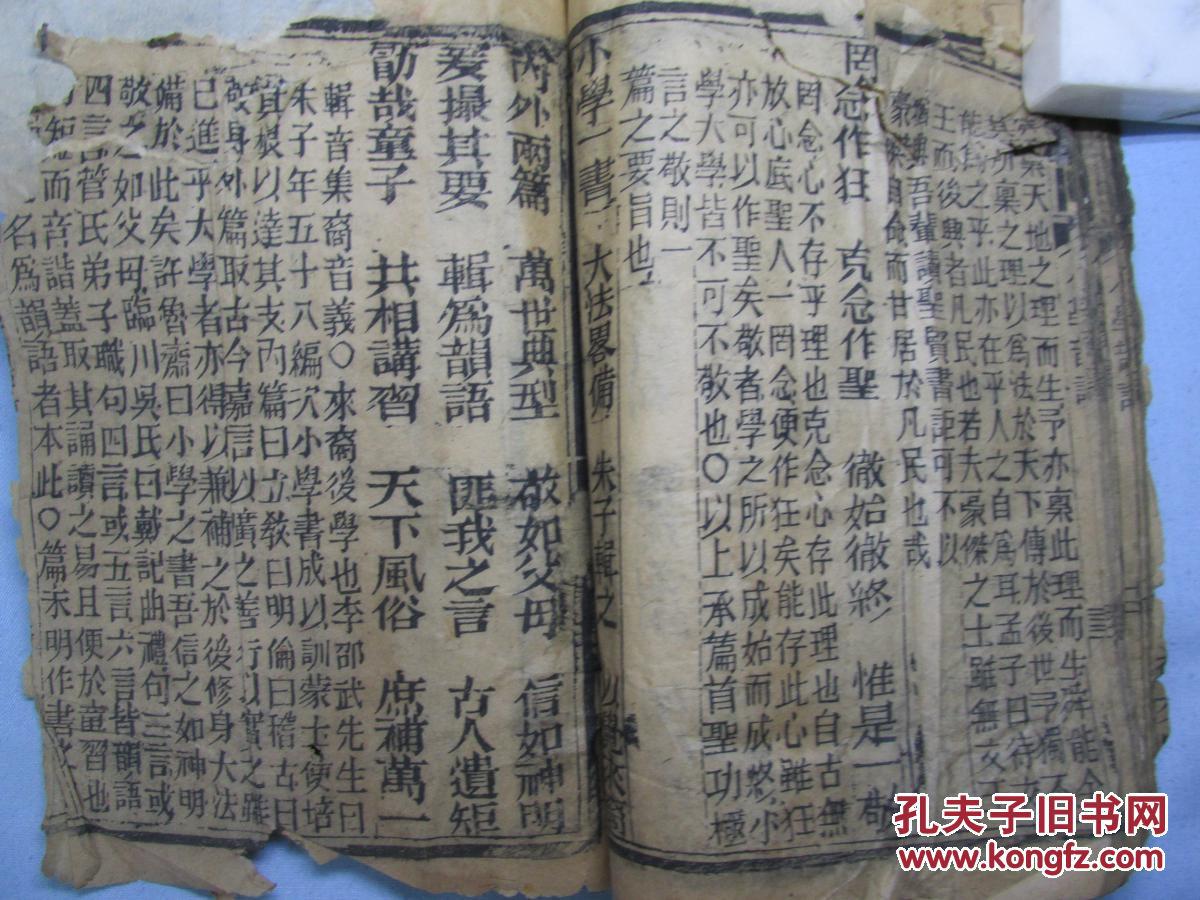 天地之理而生予亦稟此理而生舜能
所稟之理以爲法於天下傳於後世予獨不
能爲之乎此亦在乎人之自爲耳孟子曰待文
王而後興者凡民也若夫豪傑之士雖無文王
猶興吾輩讀聖賢書詎可不以
豪傑自命而甘居於凡民也哉
罔念作狂 克念作聖 徹始徹終 惟是一敬
罔念心不存乎理也克念心存此理也自古無
放心底聖人一罔念便作狂矣能存此心雖狂
亦可以作聖矣敬者學之所以成始而成終小
學大學皆不可不敬也○以上承篇首聖功極
言之敬則一
篇之要旨也
小學一書 大法畧備 朱子輯之
內外兩篇 萬世典型 敬如父母 信如神明
爰撮其要 輯爲韻語 匪我之言 古人遺矩
勖哉童子 共相講習 天下風俗 庶補萬一
輯音集裔音義○來裔後學也李邵武先生曰
朱子年五十八編次小學書成以訓蒙士使培
其根以達其支內篇曰立敎曰明倫曰稽古曰
敬身外篇取古今嘉言以廣之善行以實之雖
已進乎大學者亦得以兼補之於後修身大法
備於此矣許魯齋曰小學之書吾信之如神明
敬之如父母臨川吳氏曰戴記曲禮句三言或
四言管氏弟子職句四言或五言六言皆韻語
句短而音諧蓋取其誦讀之易且便於童習也
名爲韻語者本此○篇末明作書之
孔夫子旧书网
www.kongfz.com